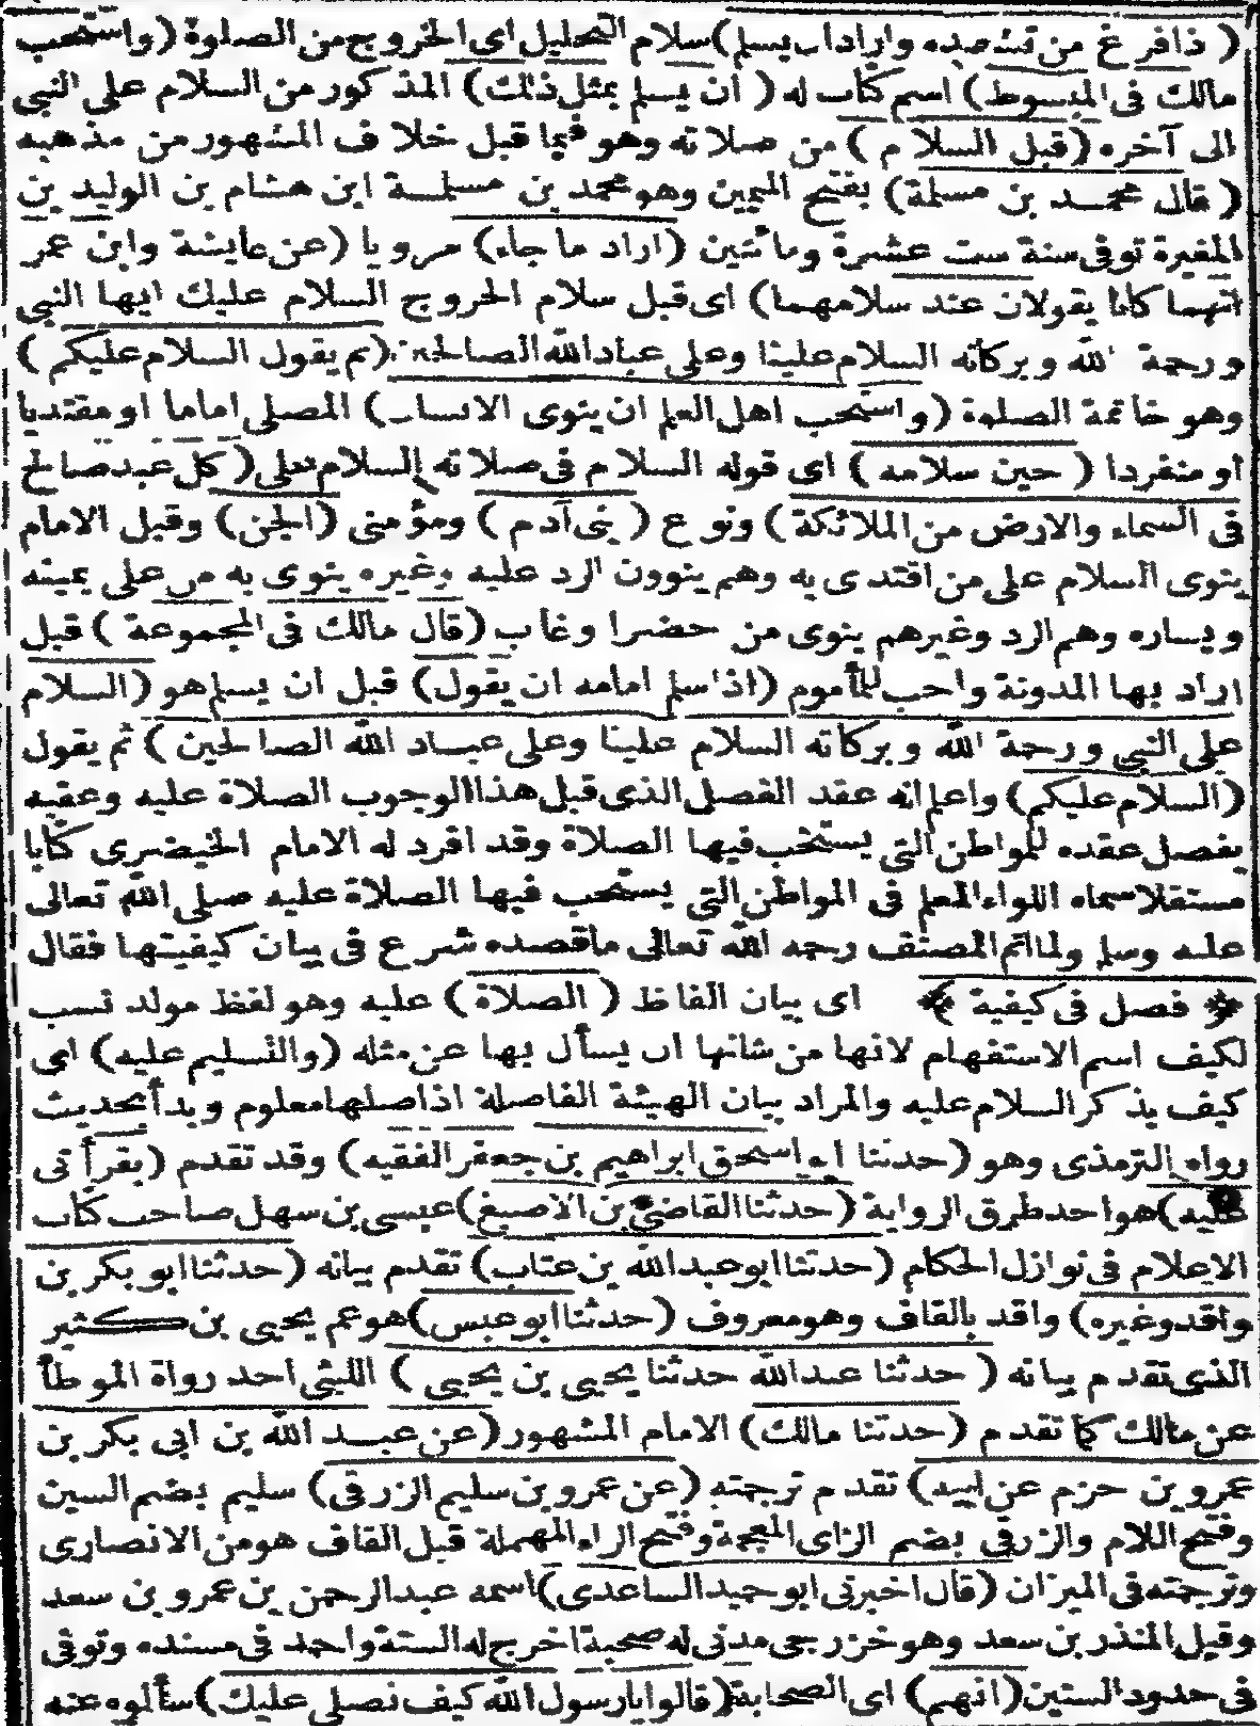 ( فاذا فرغ من تشهده واراد ان يسلم) سلام التحليل اى الخروج من الصلوة (واستحب
مالك فى المبسوط) اسم كتاب له ( ان يسلم بمثل ذلك) المذكور من السلام على النبى
الى آخره (قبل السلام ) من صلاته وهو فيما قبل خلاف المشهور من مذهبه
( قال محمد بن مسلمة) بفتح الميمين وهو محمد بن مسلمة ابن هشام بن الوليد بن
المغيرة توفى سنة ست عشرة ومائتين (اراد ما جاء) مرويا (عن عايشة وابن عمر
انهما كانا يقولان عند سلامهما) اى قبل سلام الخروج السلام عليك ايها النبى
ورحمة الله وبركاته السلام علينا وعلى عباد الله الصالحين (ثم يقول السلام عليكم )
وهو خاتمة الصلوة (واستحب اهل العلم ان ينوى الانسان) المصلى اماما او مقتديا
او منفردا ( حين سلامه ) اى قوله السلام فى صلاته السلام على (كل عبد صالح
فى السماء والارض من الملائكة ) ونوع ( بنى آدم ) ومؤمنى (الجن) وقيل الامام
ينوى السلام على من اقتدى به وهم ينوون الرد عليه وغيره ينوى به من على يمينه
ويساره وهم الرد وغيرهم ينوى من حضرا وغاب (قال مالك فى المجموعة ) قيل
اراد بها المدونة واحب للمأموم (اذا سلم امامه ان يقول) قبل ان يسلم هو (السلام
على النبى ورحمة الله وبركاته السلام علينا وعلى عباد الله الصالحين ) ثم يقول
(السلام عليكم) واعلم انه عقد الفصل الذى قبل هذا الوجوب الصلاة عليه وعقبه
بفصل عقده للمواطن التى يستحب فيها الصلاة وقد افرد له الامام الخيضرى كتابا
مستقلا سماه اللواء المعلم فى المواطن التى يستحب فيها الصلاة عليه صلى الله تعالى
عليه وسلم ولما اتم المصنف رحمه الله تعالى ما قصده شرع فى بيان كيفيتها فقال
﴿ فصل فى كيفية ﴾ اى بيان الفاظ ( الصلاة ) عليه وهو لفظ مولد نسب
لكيف اسم الاستفهام لانها من شانها ان يسأل بها عن مثله (والتسليم عليه) اى
كيف يذكر السلام عليه والمراد بيان الهيئة الفاصلة اذ اصلها معلوم وبدأ بحديث
رواه الترمذى وهو (حدثنا ابو اسحق ابراهيم بن جعفر الفقيه) وقد تقدم (بقرأتى
عليه) هو احد طرق الرواية (حدثنا القاضى بن الاصبغ) عيسى بن سهل صاحب كتاب
الاعلام فى نوازل الحكام (حدثنا ابو عبد الله بن عتاب) تقدم بيانه (حدثنا ابو بكر بن
واقد وغيره) واقد بالقاف وهو معروف (حدثنا ابو عيسى) هو عم يحيى بن كثير
الذى تقدم بيانه ( حدثنا عبد الله حدثنا يحيى بن يحيى ) الليثى احد رواة الموطأ
عن مالك كما تقدم (حدثنا مالك) الامام المشهور (عن عبد الله بن ابى بكر بن
عمرو بن حزم عن ابيه) تقدم ترجمته (عن عمرو بن سليم الزرقى) سليم بضم السين
وفتح اللام والزرقى بضم الزاى المعجمة وفتح الراء المهملة قبل القاف هو من الانصارى
وترجمته فى الميزان (قال اخبرنى ابو حميد الساعدى) اسمه عبد الرحمن بن عمرو بن سعد
وقيل المنذر بن سعد وهو خزرجى مدنى له صحبة اخرج له الستة واحمد فى مسنده وتوفى
فى حدود الستين (انهم) اى الصحابة (قالوا يا رسول الله كيف نصلى عليك) سألوه عنه